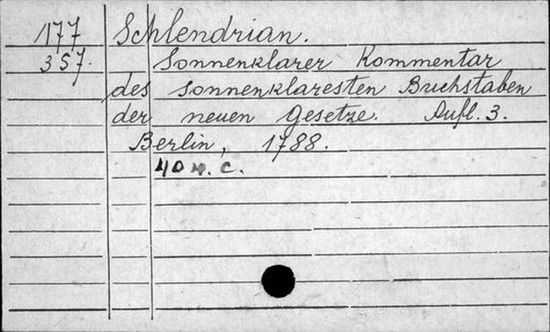 177 Schlendrian.
357. Sonnenklarer Kommentar
des sonnenklaresten Buchstaben
der neuen Gesetze. Aufl. 3.
Berlin, 1788.
40 н. с.